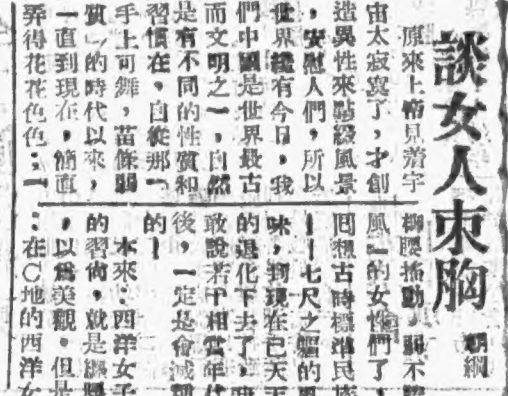 談女人束胸
綱
原來上帝見着宇
宙太寂寞了，才創
造異性來點綴風景
，安慰人們，所以
世界纔有今日，我
們中國是世界最古
而文明之一，自然
是有不同的性質和
習慣在，自從那「
手上可舞，苗條弱
質」的時代以來，
一直到現在，簡直
弄得花花色色；一
柳腰搖動，弱不
風」的女性們了，
回想古時標準民族
——七尺之軀的風
味，到現在已天天
的退化下去了，
敢說若干相當年代
後，一定是會減種
的！
本來：西洋女子
的習尚，就是纖腰
，以爲美觀。但是
：在○地的西洋女